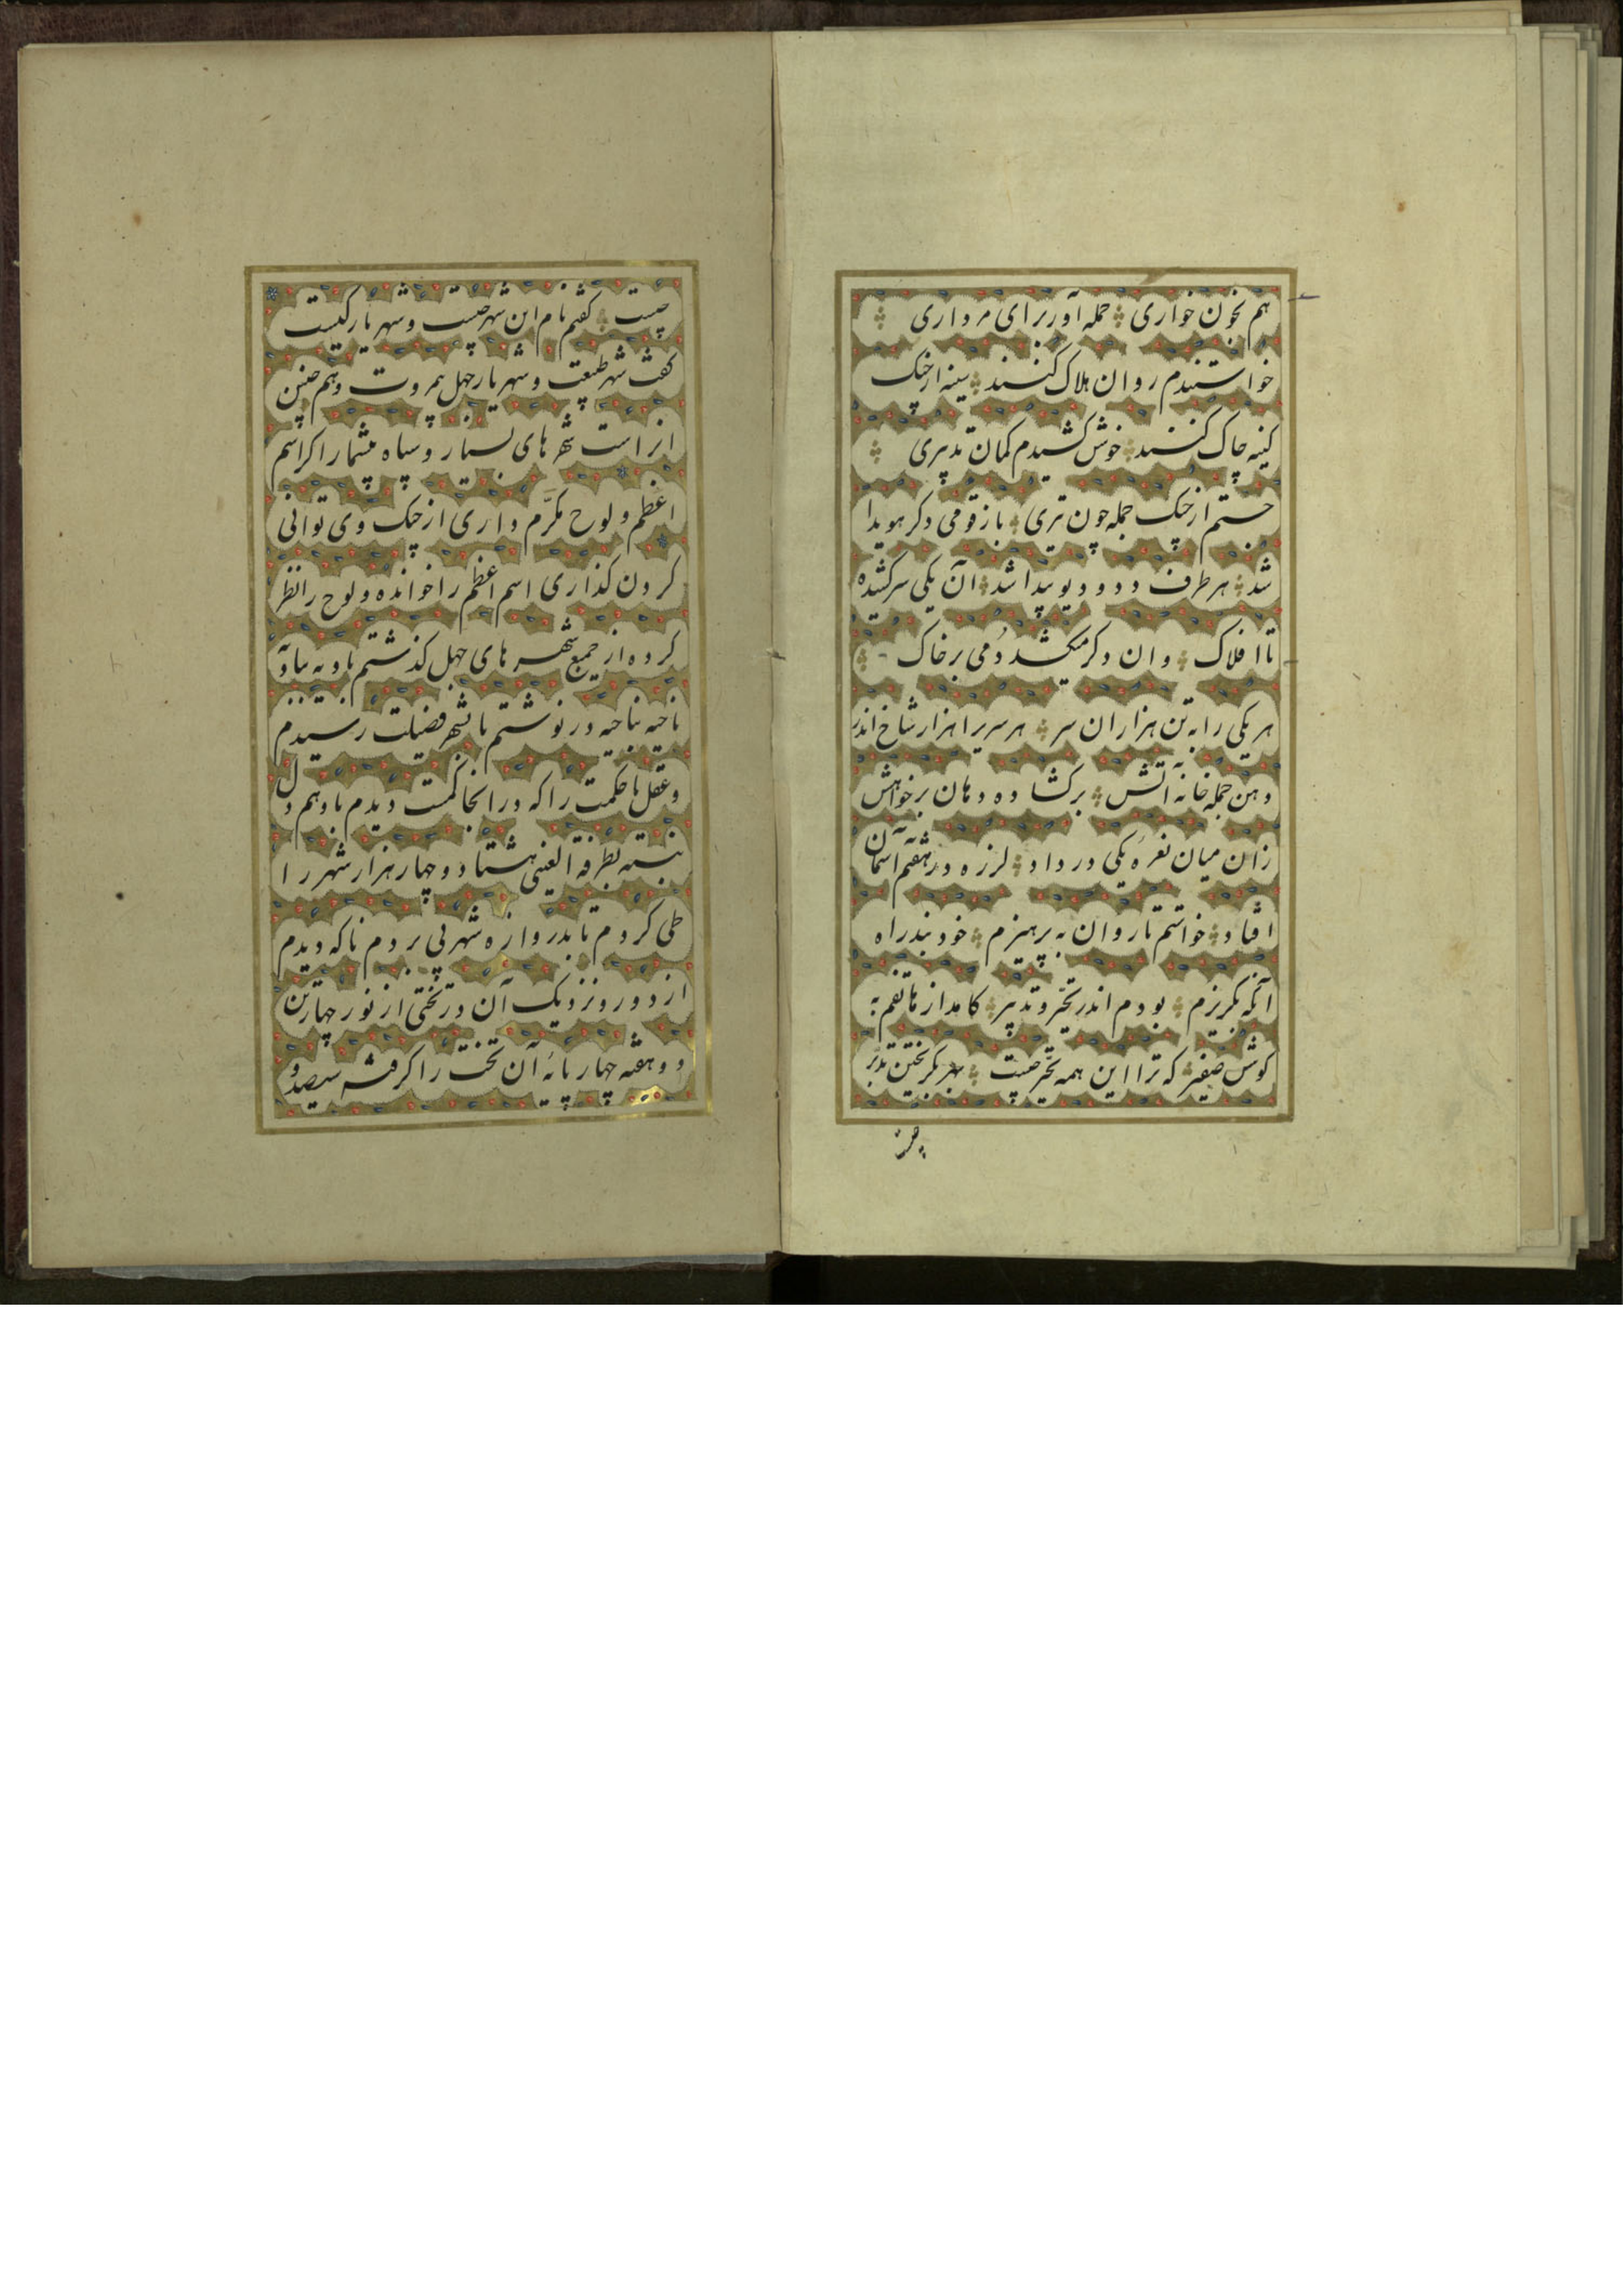 هم بخون خواری حمله آور برای مرداری
خواستندم روان هلاک کنند سینه از چنک
کینه چاک کنند خوش کشیدم کمان تدبیری
جستم از چنک جمله چون تیری باز قومی دکر هویدا
شد هر طرف دد و دیو پیدا شد آن یکی سر کشیده
تا افلاک وان دکر میکشد دمی بر خاک
هر یکی را به تن هزاران سر هر سریرا هزار شاخ اندر
دهن جمله خانه آتش بر کشاده دهان بر خواهش
زان میان نعره یکی در داد لرزه در هفتم آسمان
افتاد خواستم تا روان به پرهیزم خود بتدراه
آنکه بکریزم بودم اندر تحیر و تدبیر کامد از هاتفم به
کوش صفیر که ترا این همه تحیر چیست بهر بکریختن تدبر
چیست کفتم نام این شهر چیست و شهریار کیست
کفت شهر طبیعت و شهریار جهل بمروت و همچنین
از است شهرهای بسیار و سپاه بیشمار اکر اسم
اعظم و لوح مکرم داری از چنک وی توانی
کردن کذاری اسم اعظم را خوانده و لوح را نظر
کرده از جمیع شهرهای جهل کذشتم بادیه بباد
ناحیه بناحیه در نوشتم تا بشهر فضیلت رسیدم
و عقل با حکمت را که در انجا کمست دیدم با وهم دل
بسته بطرفة العینی هشتاد و چهار هزار شهر را
طی کردم تا بدروازه شهر پی بردم ناکه دیدم
از دور و نزدیک آن در تختی از نور چهار تن
دو هفته چهار پایه آن تخت را کرفته سیصد و